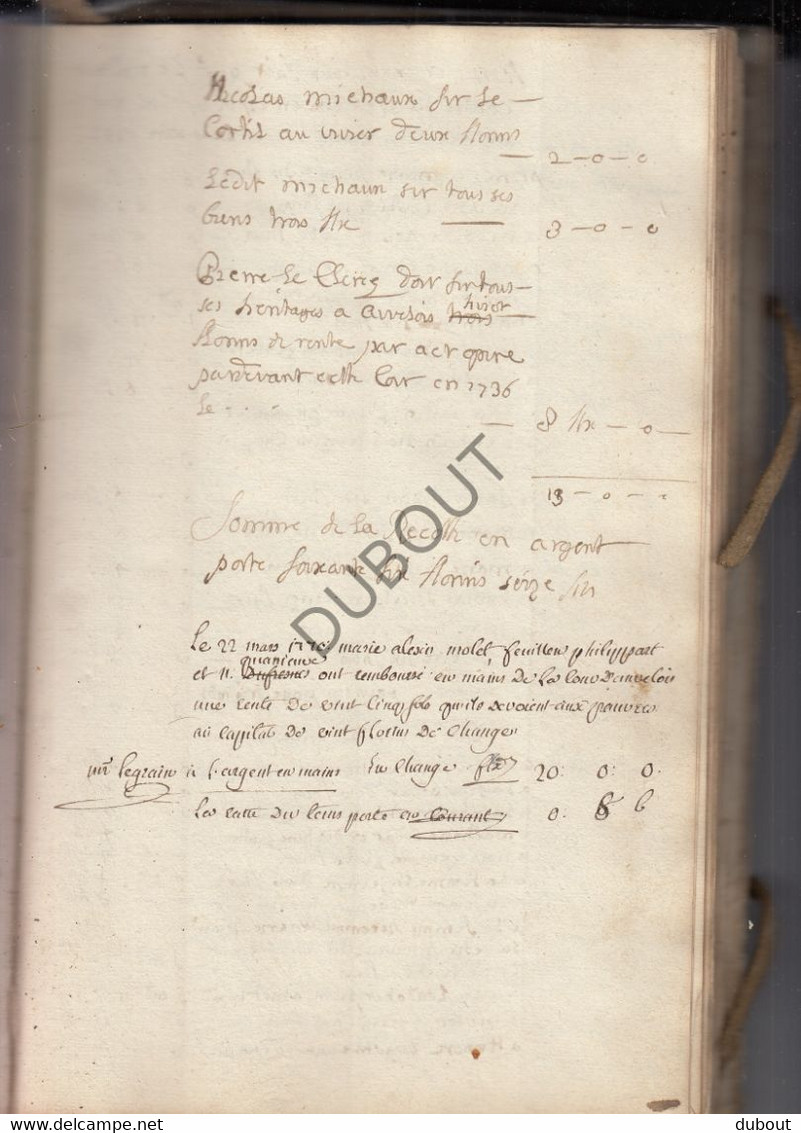 Nicolas michaux sur le —
Cortil au vivier deux florins
— 2 — 0 — 0
Ledit michaux sur tous ses
biens trois flx — 3 — 0 — 0
Pierre Le Clercq doit sur tous —
ses heritages a auvelois trois huict —
florins de rente par act
pardevant cette Cour en 1736
Le . . .
— 8 flx — 0 —
13 — 0 — 0
Somme de la Recette en argent
porte soixante six florins séize
DUBOUT
Le 22 mars marie alexis molet feuillen philippart
et n. Dufresne ont remboursé en mains de La Cour D'auvelois
une rente de vint cinq sols qu'ils devoient aux pauvres
au capital de vint florins de Change
mr legrain a l'argent en mains En Change flx 20: 0: 0.
La ratte du tems porte en Courant 0. 8 6
delcampe.net
dubout